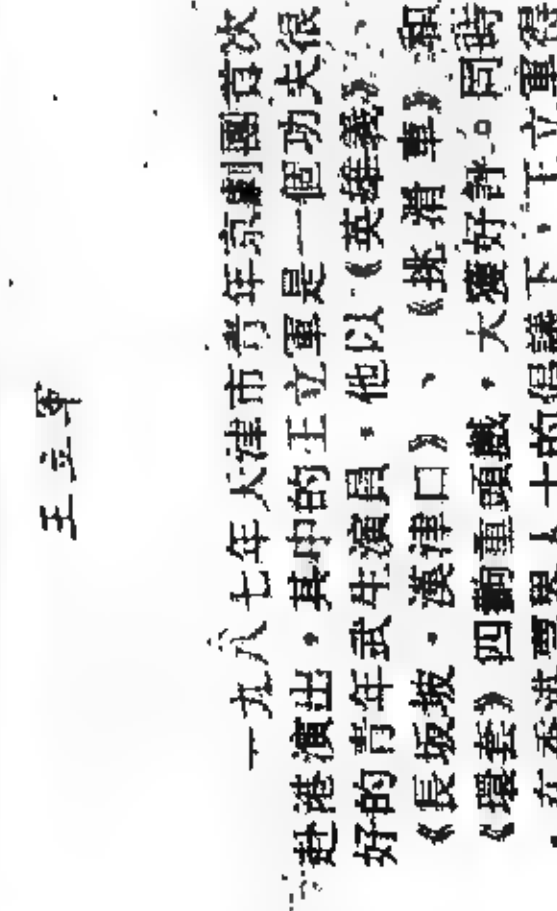 王立軍
一九八七年天津市青年京劇團首次
赴港演出，其中的王立軍是一個功夫很
好的青年武生演員，他以《英雄義》、
《長坂坡·漢津口》、《挑滑車》和
《環套》四齣重頭戲，大獲好評。同時
，在香港票界人士的倡議下，王立軍得